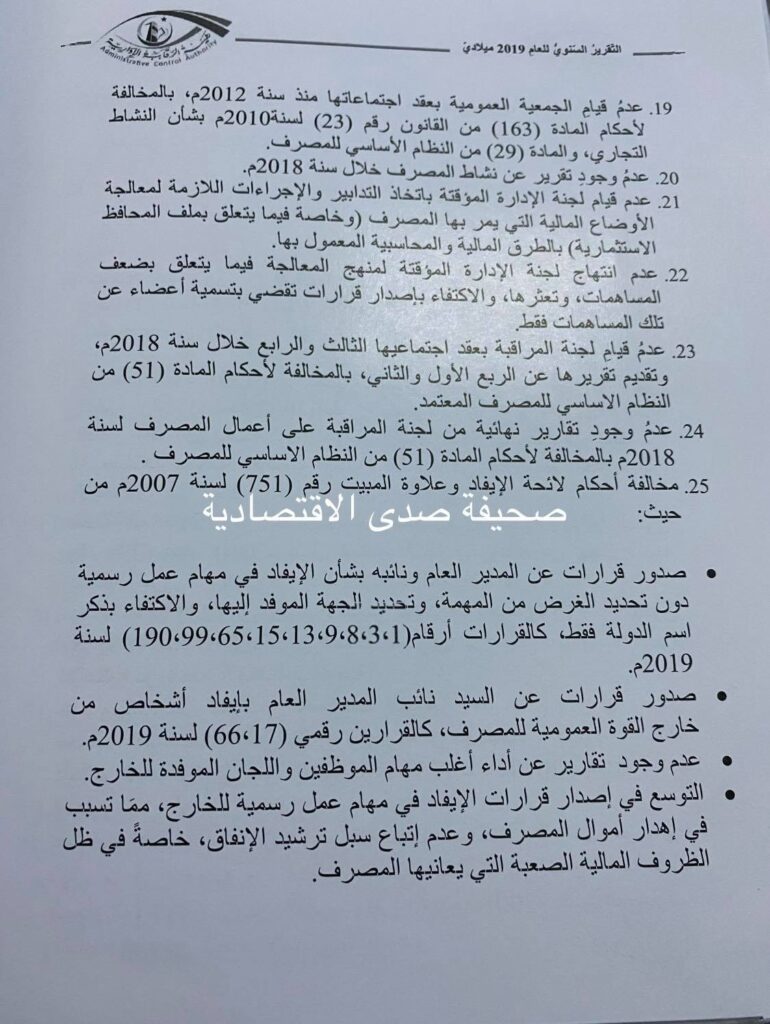 هيئة الرقابة الإدارية
Administrative Control Authority
التقرير السنوي للعام 2019 ميلادي
19. عدمُ قيامِ الجمعية العمومية بعقد اجتماعاتها منذ سنة 2012م، بالمخالفة
لأحكام المادة (163) من القانون رقم (23) لسنة2010م بشأن النشاط
التجاري، والمادة (29) من النظام الأساسي للمصرف.
20. عدمُ وجودِ تقرير عن نشاط المصرف خلال سنة 2018م.
21. عدم قيام لجنة الإدارة المؤقتة باتخاذ التدابير والإجراءات اللازمة لمعالجة
الأوضاع المالية التي يمر بها المصرف (وخاصة فيما يتعلق بملف المحافظ
الاستثمارية) بالطرق المالية والمحاسبية المعمول بها.
22. عدم انتهاج لجنة الإدارة المؤقتة لمنهج المعالجة فيما يتعلق بضعف
المساهمات، وتعثرها، والاكتفاء بإصدار قرارات تقضي بتسمية أعضاء عن
تلك المساهمات فقط.
23. عدمُ قيامِ لجنة المراقبة بعقد اجتماعيها الثالث والرابع خلال سنة 2018م،
وتقديم تقريرها عن الربع الأول والثاني، بالمخالفة لأحكام المادة (51) من
النظام الاساسي للمصرف المعتمد.
24. عدمُ وجودِ تقارير نهائية من لجنة المراقبة على أعمال المصرف لسنة
2018م بالمخالفة لأحكام المادة (51) من النظام الاساسي للمصرف .
25. مخالفة أحكام لائحة الإيفاد وعلاوة المبيت رقم (751) لسنة 2007م من
صحيفة صدى الاقتصادية
حيث:
• صدور قرارات عن المدير العام ونائبه بشأن الإيفاد في مهام عمل رسمية
دون تحديد الغرض من المهمة، وتحديد الجهة الموفد إليها، والاكتفاء بذكر
اسم الدولة فقط، كالقرارات أرقام(1،3،8،9،13،15،65،99،190) لسنة
2019م.
• صدور قرارات عن السيد نائب المدير العام بإيفاد أشخاص من
خارج القوة العمومية للمصرف، كالقرارين رقمي (17،66) لسنة 2019م.
• عدم وجود تقارير عن أداء أغلب مهام الموظفين واللجان الموفدة للخارج.
• التوسع في إصدار قرارات الإيفاد في مهام عمل رسمية للخارج، ممّا تسبب
في إهدار أموال المصرف، وعدم إتباع سبل ترشيد الإنفاق، خاصةً في ظل
الظروف المالية الصعبة التي يعانيها المصرف.